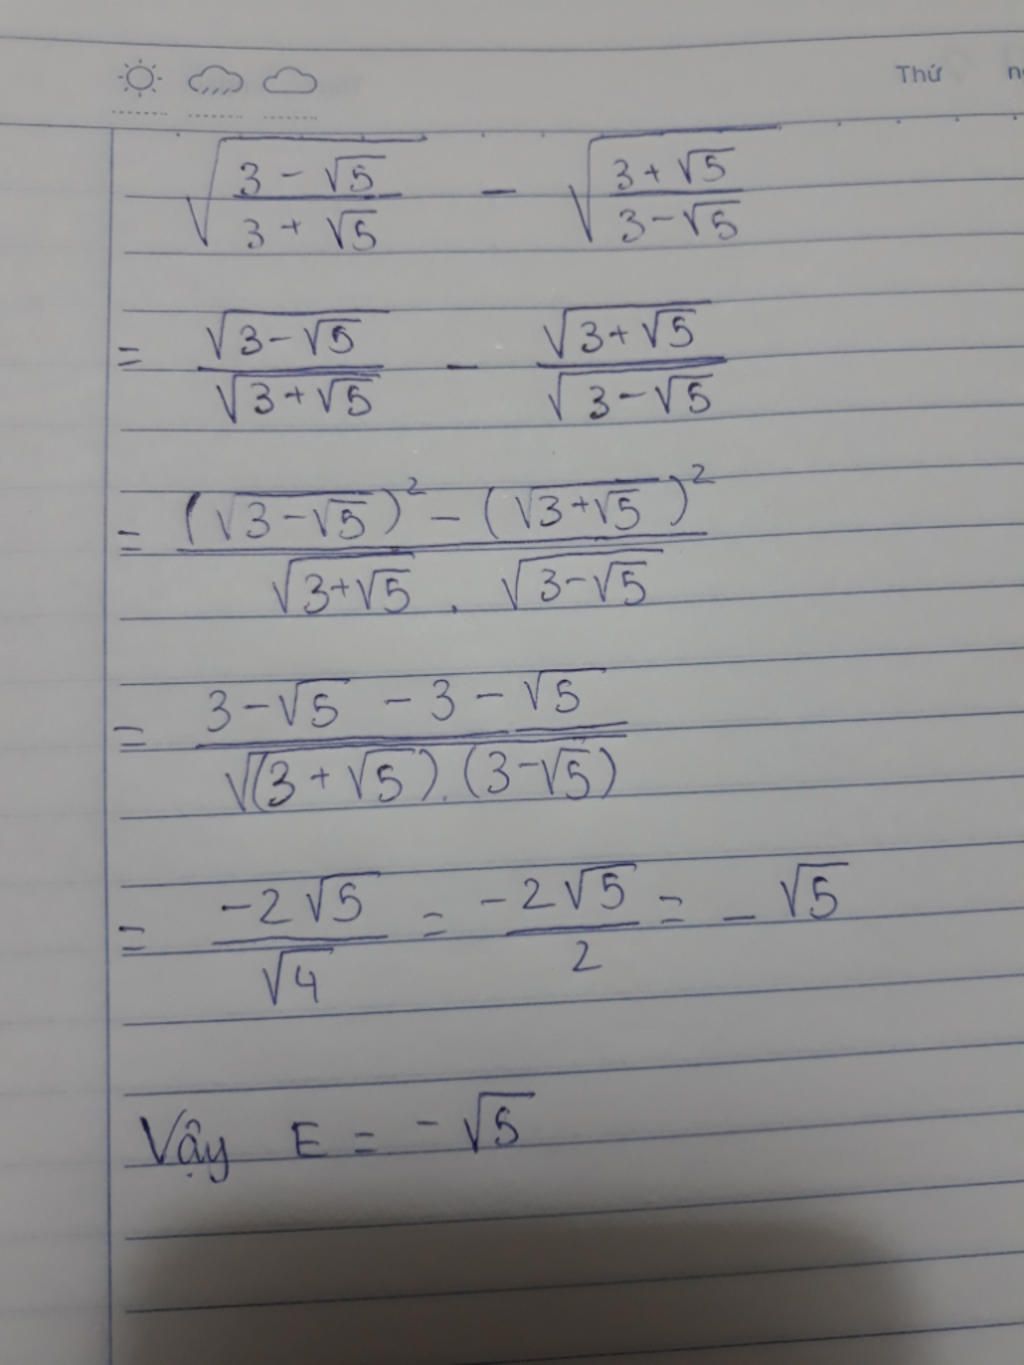 Thứ
√((3 - √5)/(3 + √5)) - √((3 + √5)/(3 - √5))
= √(3 - √5)/√(3 + √5) - √(3 + √5)/√(3 - √5)
= ((√(3 - √5))² - (√(3 + √5))²)/(√(3 + √5) . √(3 - √5))
= (3 - √5 - 3 - √5)/√((3 + √5).(3 - √5))
= (-2√5)/√4 = (-2√5)/2 = - √5
Vậy E = - √5